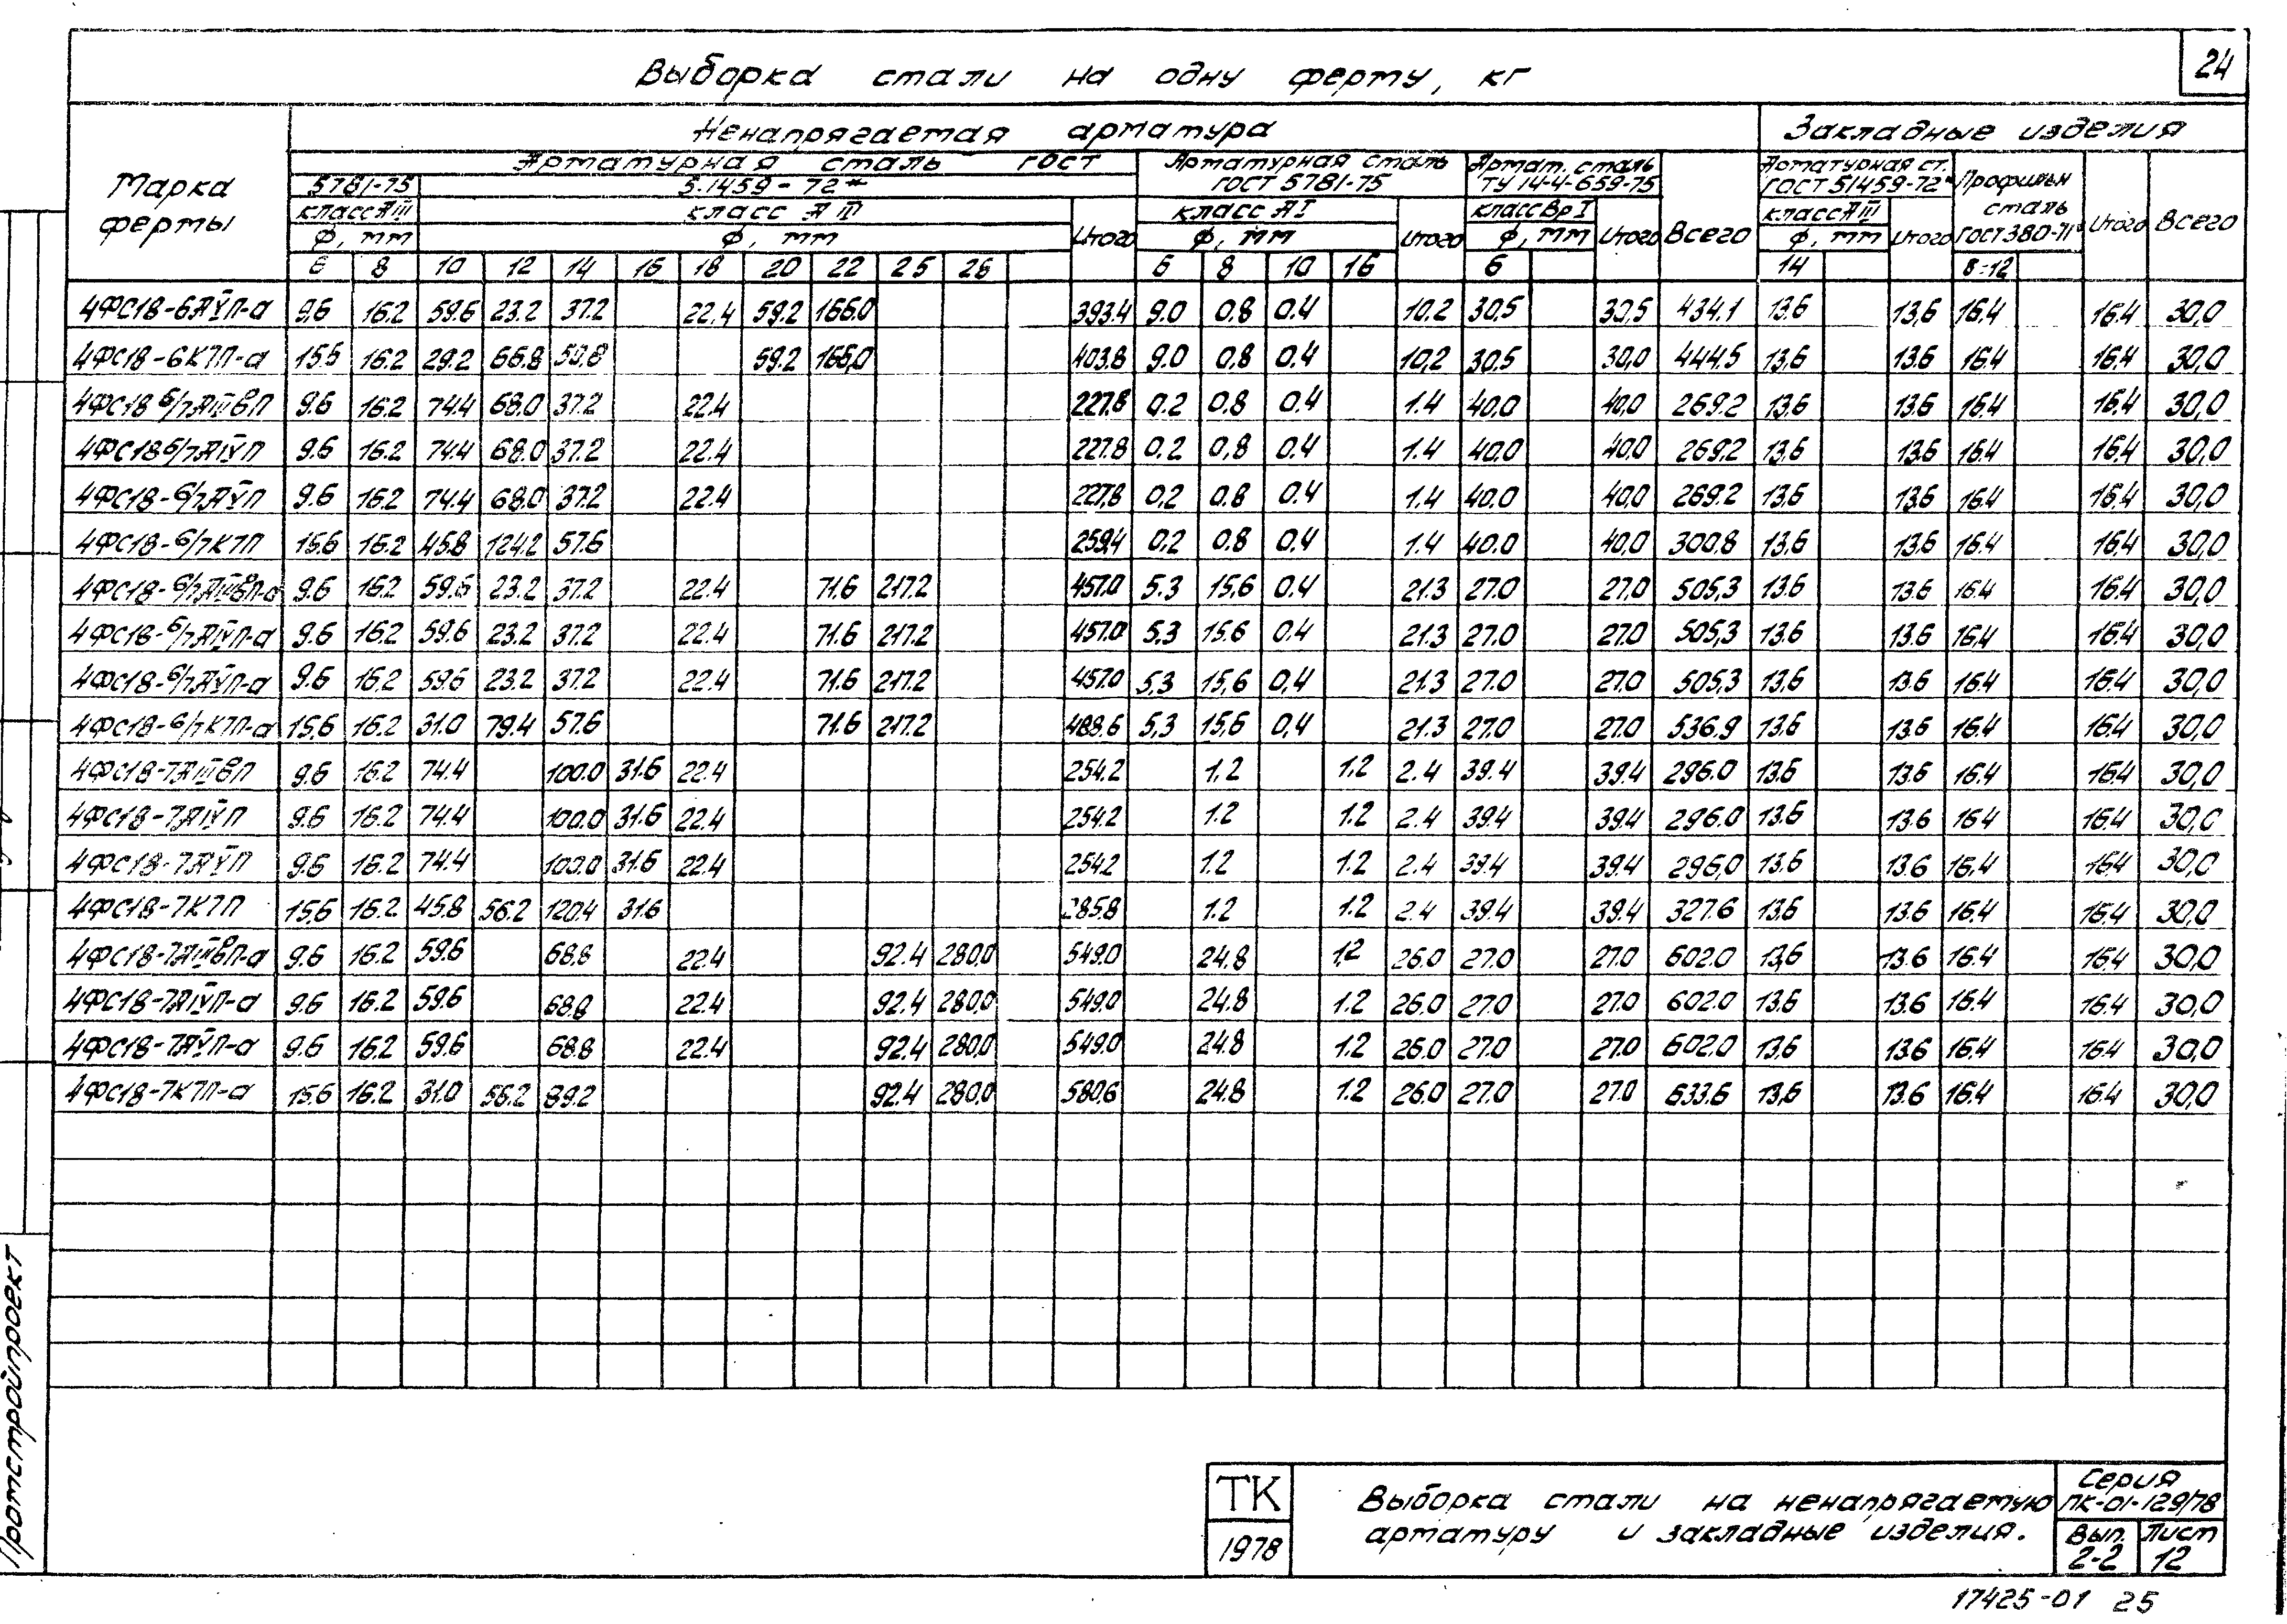 24
Выборка стали на одну ферму, кг
Марка фермы
Ненапрягаемая арматура
Закладные изделия
Арматурная сталь ГОСТ
Арматурная сталь ГОСТ 5781-75
Армат. сталь ТУ 14-4-659-75
Арматурная ст. ГОСТ 5.1459-72*
Профильн сталь ГОСТ 380-71*
5781-75
5.1459-72*
класс АIII
класс АIII
класс АI
класс ВрI
класс АIII
Итого Итого Итого Всего Итого Итого Всего
ф, мм ф, мм ф, мм ф, мм ф, мм
6 8 10 12 14 16 18 20 22 25 28 6 8 10 16 6 14 δ=12
4ФС18-6АVП-а 9.6 16.2 59.6 23.2 37.2 22.4 59.2 166.0 393.4 9.0 0.8 0.4 10.2 30.5 30,5 434.1 13.6 13,6 16.4 16.4 30,0
4ФС18-6К7П-а 15.6 16.2 29.2 66.8 50.8 59.2 166,0 403.8 9.0 0.8 0.4 10,2 30.5 30,0 444.5 13,6 13.6 16.4 16.4 30,0
4ФС18 6/7АIIIвП 9.6 16.2 74.4 68.0 37.2 22.4 227.8 0.2 0.8 0.4 1.4 40.0 40,0 269.2 13,6 13.6 16.4 16.4 30,0
4ФС18 6/7АIVП 9.6 16.2 74.4 68.0 37.2 22.4 227.8 0.2 0,8 0.4 1.4 40.0 40,0 269.2 13,6 13.6 16.4 16.4 30,0
4ФС18-6/7АVП 9.6 16.2 74.4 68.0 37.2 22.4 227,8 0,2 0.8 0.4 1.4 40.0 40,0 269.2 13,6 13.6 16.4 16.4 30,0
4ФС18-6/7К7П 15.6 16.2 45.8 124.2 57.6 259.4 0,2 0.8 0.4 1.4 40.0 40,0 300.8 13,6 13.6 16.4 16.4 30,0
4ФС18-6/7АIIIвП-а 9.6 16.2 59.6 23.2 37.2 22.4 71.6 217.2 457.0 5.3 15,6 0.4 21.3 27.0 27.0 505,3 13.6 13.6 16.4 16.4 30,0
4ФС18-6/7АIVП-а 9.6 16.2 59.6 23.2 37.2 22.4 71.6 217.2 457.0 5.3 15.6 0.4 21.3 27.0 27.0 505,3 13.6 13.6 16.4 16.4 30,0
4ФС18-6/7АVП-а 9.6 16.2 59.6 23.2 37.2 22.4 71.6 217.2 457.0 5,3 15,6 0,4 21.3 27.0 27.0 505.3 13.6 13.6 16.4 16.4 30,0
4ФС18-6/7К7П-а 15,6 16.2 31.0 79.4 57.6 71.6 217.2 488.6 5,3 15,6 0,4 21.3 27.0 27.0 536.9 13.6 13.6 16.4 16.4 30,0
4ФС18-7АIIIвП 9.6 16.2 74.4 100.0 31.6 22.4 254.2 1.2 1.2 2.4 39.4 39.4 296.0 13.6 13.6 16.4 16.4 30,0
4ФС18-7АIVП 9.6 16.2 74.4 100.0 31.6 22.4 254.2 1.2 1.2 2.4 39.4 39.4 296.0 13.6 13.6 16.4 16.4 30,0
4ФС18-7АVП 9.6 16.2 74.4 100.0 31.6 22.4 254.2 1.2 1.2 2.4 39.4 39.4 296,0 13.6 13.6 16.4 16.4 30,0
4ФС18-7К7П 15,6 16.2 45.8 56.2 120.4 31.6 285.8 1.2 1.2 2.4 39.4 39.4 327.6 13,6 13.6 16.4 16.4 30,0
4ФС18-7АIIIвП-а 9.6 16.2 59.6 68.8 22.4 92.4 280,0 549.0 24.8 1,2 26.0 27.0 27.0 602.0 13,6 13.6 16.4 16.4 30,0
4ФС18-7АIVП-а 9.6 16.2 59.6 68.8 22.4 92.4 280,0 549.0 24.8 1.2 26.0 27.0 27.0 602.0 13.6 13.6 16.4 16.4 30,0
4ФС18-7АVП-а 9.6 16.2 59.6 68.8 22.4 92.4 280,0 549.0 24.8 1.2 26.0 27.0 27.0 602.0 13.6 13.6 16.4 16.4 30,0
4ФС18-7К7П-а 15.6 16.2 31.0 56.2 89.2 92.4 280,0 580.6 24.8 1.2 26.0 27.0 27.0 633.6 13,6 13.6 16.4 16.4 30,0
Промстройпроект
ТК
1978
Выборка стали на ненапрягаемую
арматуру и закладные изделия.
Серия
ПК-01-129/78
Вып. 2-2
Лист 12
17425-01 25